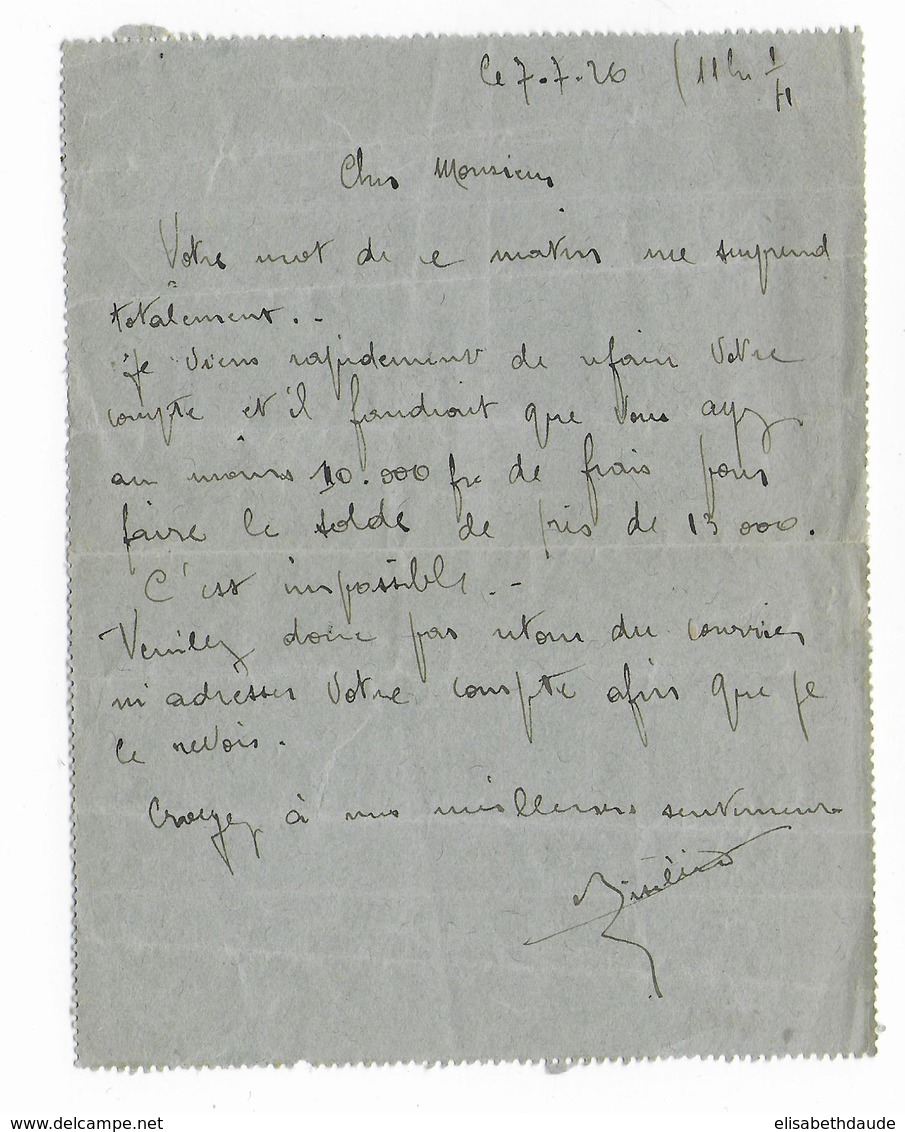 Le 7.7.26 (11h
Cher Monsieur
Votre mot de ce matin me surprend
totalement. -
Je viens rapidement de refaire votre
compte et il faudrait que vous ayez
au moins 10.000 frs de frais pour
faire le solde de près de 13 000.
C'est impossible. -
Veuillez donc par retour du courrier
m'adresser votre compte afin que je
le revois.
Croyez à mes meilleurs sentiments
www.delcampe.net
elisabethdaude